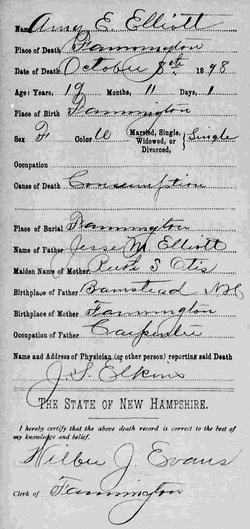 Name Amy E. Elliott
Place of Death Farmington
Date of Death October 8th 1898
Age: Years, 19 Months, 11 Days, 1
Place of Birth Farmington
Sex F Color W Married, Single, Widowed, or Divorced, } Single
Occupation
Cause of Death Consumption
Place of Burial Farmington
Name of Father Jesse M Elliott
Maiden Name of Mother Ruth S Otis
Birthplace of Father Barnstead N.H.
Birthplace of Mother Farmington
Occupation of Father Carpenter
Name and Address of Physician (or other person) reporting said Death
J. S. Elkins
THE STATE OF NEW HAMPSHIRE.
I hereby certify that the above death record is correct to the best of
my knowledge and belief.
Wilbur J. Evans
Clerk of Farmington